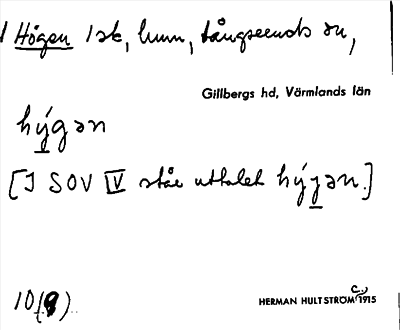 Högen 1 sk, hmn, Långseruds sn,
Gillbergs hd, Värmlands län
hýgən
[I SOV IV står uttalet hýgən.]
10(9)
HERMAN HULTSTRÖM C:a 1915